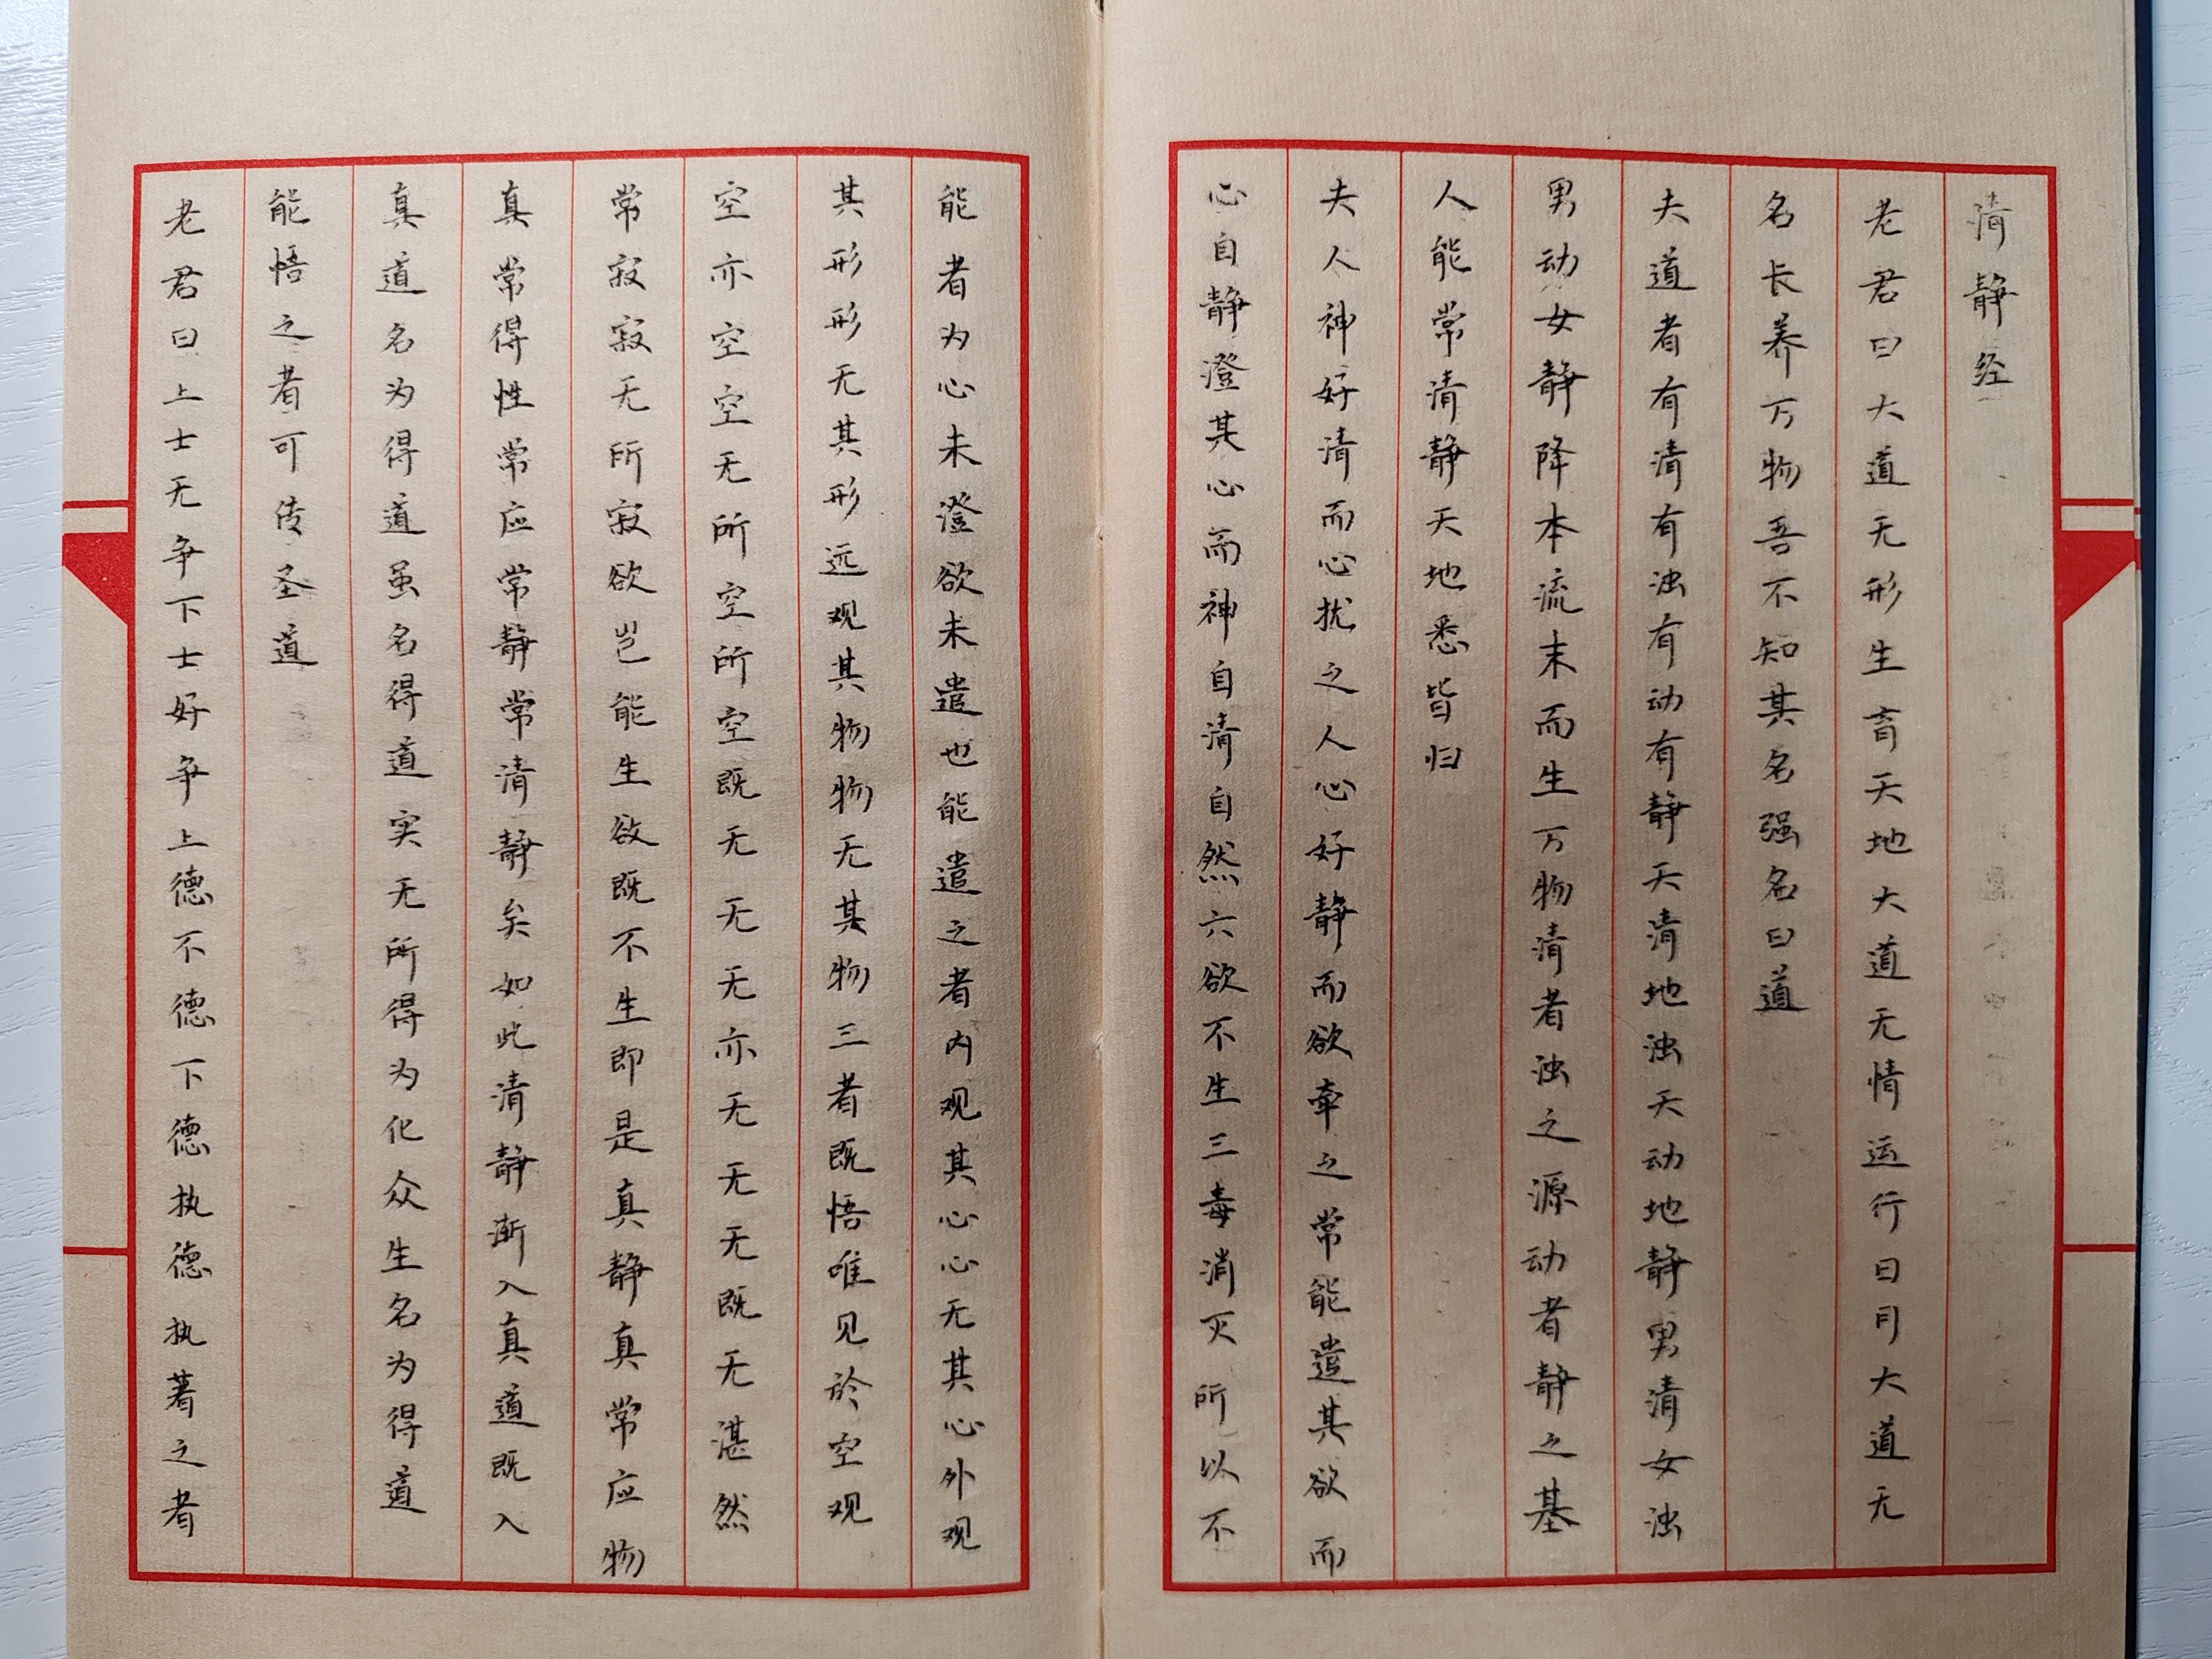 清静经
老君曰大道无形生育天地大道无情运行日月大道无
名长养万物吾不知其名强名曰道
夫道者有清有浊有动有静天清地浊天动地静男清女浊
男动女静降本流末而生万物清者浊之源动者静之基
人能常清静天地悉皆归
夫人神好清而心扰之人心好静而欲牵之常能遣其欲而
心自静澄其心而神自清自然六欲不生三毒消灭所以不
能者为心未澄欲未遣也能遣之者内观其心心无其心外观
其形形无其形远观其物物无其物三者既悟唯见於空观
空亦空空无所空所空既无无无亦无无无既无湛然
常寂寂无所寂欲岂能生欲既不生即是真静真常应物
真常得性常应常静常清静矣如此清静渐入真道既入
真道名为得道虽名得道实无所得为化众生名为得道
能悟之者可传圣道
老君曰上士无争下士好争上德不德下德执德执著之者